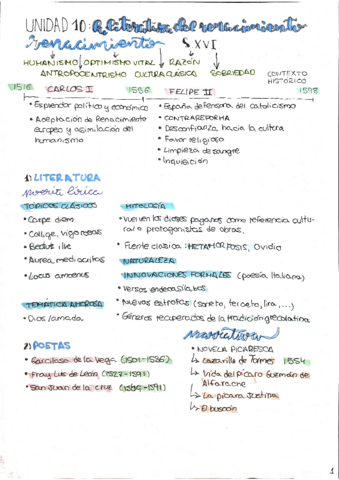 UNIDAD 10: La literatura del renacimiento
renacimiento S.XVI
HUMANISMO / OPTIMISMO VITAL RAZÓN
ANTROPOCENTRISMO CULTURA CLÁSICA SOBRIEDAD CONTEXTO HISTÓRICO
1516 CARLOS I 1556 FELIPE II 1598
• Esplendor político y económico
• Aceptación de Renacimiento europeo y asimilación del humanismo
• España defensora del catolicismo
• CONTRAREFORMA
• Desconfianza hacia la cultura
• Favor religioso
• Limpieza de sangre
• Inquisición
1) LITERATURA
lírica
TÓPICOS CLÁSICOS
• Carpe diem
• Collige, virgo rosas
• Beatus ille
• Aurea mediocritas
• Locus amoenus
TEMÁTICA AMOROSA
• Dios/amada.
MITOLOGÍA
• Vuelven los dioses paganos como referencia cultural o protagonistas de obras.
• Fuente clásica: METAMORFOSIS, Ovidio
NATURALEZA
INNOVACIONES FORMALES (poesía italiana)
• Versos endecasílabos
• Nuevas estrofas (soneto, terceto, lira, ...)
• Géneros recuperados de la tradición grecolatina
2) POETAS
• Garcilaso de la Vega (1501-1536)
• Fray Luis de León (1527-1591)
• San Juan de la Cruz (1549-1591)
narrativa
• NOVELA PICARESCA
↳ Lazarillo de Tormes 1554
↳ Vida del Pícaro Guzmán de Alfarache
↳ La pícara Justina
↳ El buscón
1